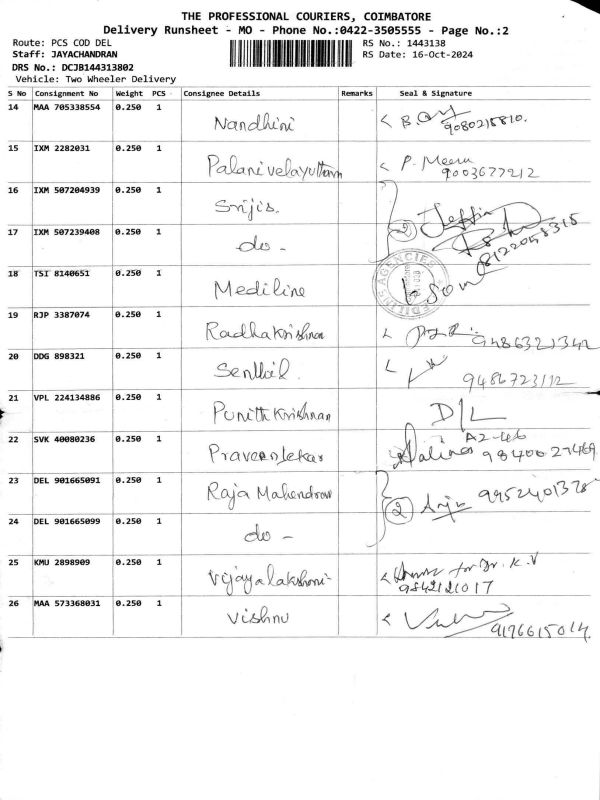 THE PROFESSIONAL COURIERS, COIMBATORE
Delivery Runsheet - MO - Phone No.:0422-3505555 - Page No.:2
Route: PCS COD DEL RS No.: 1443138
Staff: JAYACHANDRAN RS Date: 16-Oct-2024
DRS No.: DCJB144313802
Vehicle: Two Wheeler Delivery
S No Consignment No Weight PCS Consignee Details Remarks Seal & Signature
14 MAA 705338554 0.250 1 Nandhini
15 IXM 2282031 0.250 1 Palanivelayutham P. Meena 9003677212
16 IXM 507204939 0.250 1 Srijis.
17 IXM 507239408 0.250 1 do - 2
18 TSI 8140651 0.250 1 Mediline
AGENCIES
19 RJP 3387074 0.250 1 Radhakrishnan 9486321342
20 DDG 898321 0.250 1 Senthil. 9486723112
21 VPL 224134886 0.250 1 Punithkrishnan D/L
22 SVK 40080236 0.250 1 A2-46 9840027469
23 DEL 901665091 0.250 1 Raja Mahendran 2 Anju
24 DEL 901665099 0.250 1 do -
25 KMU 2898909 0.250 1 Vijayalakshmi for Dr. K.V 9842121017
26 MAA 573368031 0.250 1 Vishnu